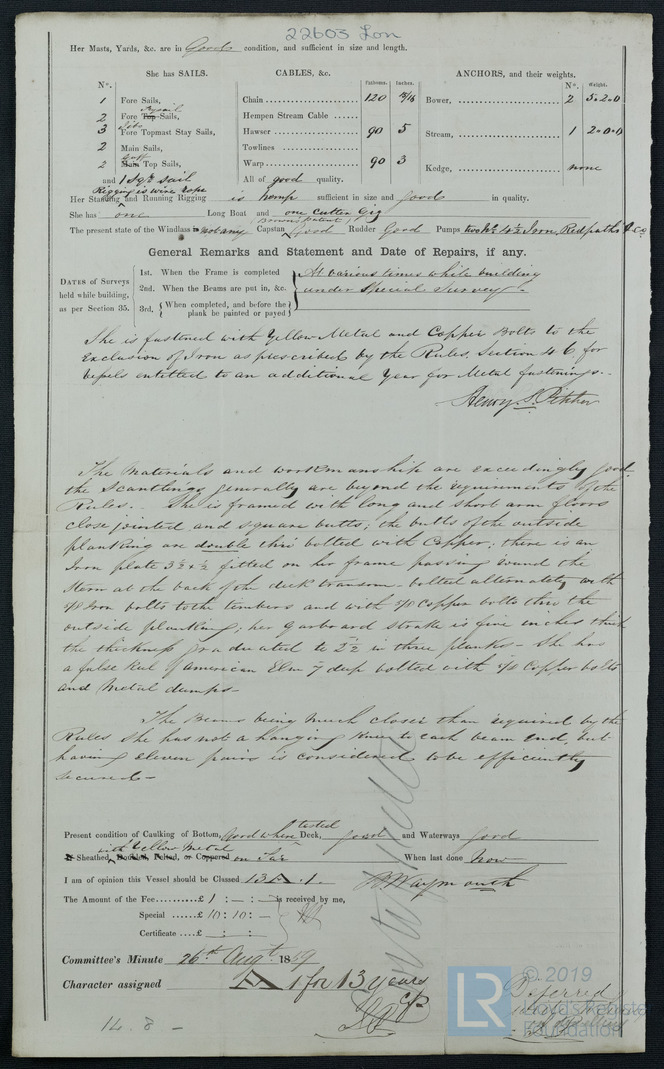 22603 Lon
Her Masts, Yards, &c. are in Good condition, and sufficient in size and length.
She has SAILS.
CABLES, &c.
ANCHORS, and their weights.
N°.
Fathoms. Inches.
N°. Weight.
1 Fore Sails,
2 Fore Top Sails,
3 Fore Topmast Stay Sails,
2 Main Sails,
2 Main Top Sails,
and 1 Sqr sail
Chain 120
Hempen Stream Cable
Hawser 90 5
Towlines
Warp 90 3
All of good quality.
Bower, 2 5.2.0
Stream, 1 2.0.0
Kedge, none
Rigging is wire rope
Her Standing and Running Rigging is hemp sufficient in size and good in quality.
She has one Long Boat and one Cutter Gig
The present state of the Windlass is not any Capstan Good Rudder Good Pumps two No 4½ Iron, Redpaths & Co
General Remarks and Statement and Date of Repairs, if any.
DATES of Surveys held while building, as per Section 35.
1st. When the Frame is completed
2nd. When the Beams are put in, &c.
3rd. When completed, and before the plank be painted or payed
At various times while building
under Special Survey -
She is fastened with Yellow Metal and Copper Bolts to the
Exclusion of Iron as prescribed by the Rules, Section 46 for
Vessels entitled to an additional Year for Metal fastenings.
Henry S. Pitcher
The Materials and workmanship are exceedingly good
the Scantlings generally are beyond the requirements of the
Rules. She is framed with long and short arm floors
close jointed and square butts; the butts of the outside
planking are double thro bolted with Copper; there is an
Iron plate 3½ x ½ fitted on her frame passing round the
Stern at the back of the deck transom - bolted alternately with
Iron bolts to the timbers and with Copper bolts thro the
outside planking; her Garboard strake is five inches thick
the thickness graduated to 2½ in three planks - She has
a false keel of American Elm 7 deep bolted with Copper bolts
and Metal dumps -
The Beams being much closer than required by the
Rules She has not a hanging Knee to each beam end, but
having eleven pairs is considered to be efficiently
secured -
Present condition of Caulking of Bottom, Good where tested Deck, good and Waterways good
Sheathed, Doubled, Felted, or Coppered with Yellow Metal on Tar When last done Now
I am of opinion this Vessel should be Classed 13 A. 1.
B Waymouth
The Amount of the Fee £ 1 : - : - is received by me,
Special £ 10 : 10 : -
Certificate £ - : - :
Committee's Minute 26th Augt 1859
Character assigned A 1 for 13 years
14. 8 -
Deferred
LR
© 2019
Lloyd's Register
Foundation